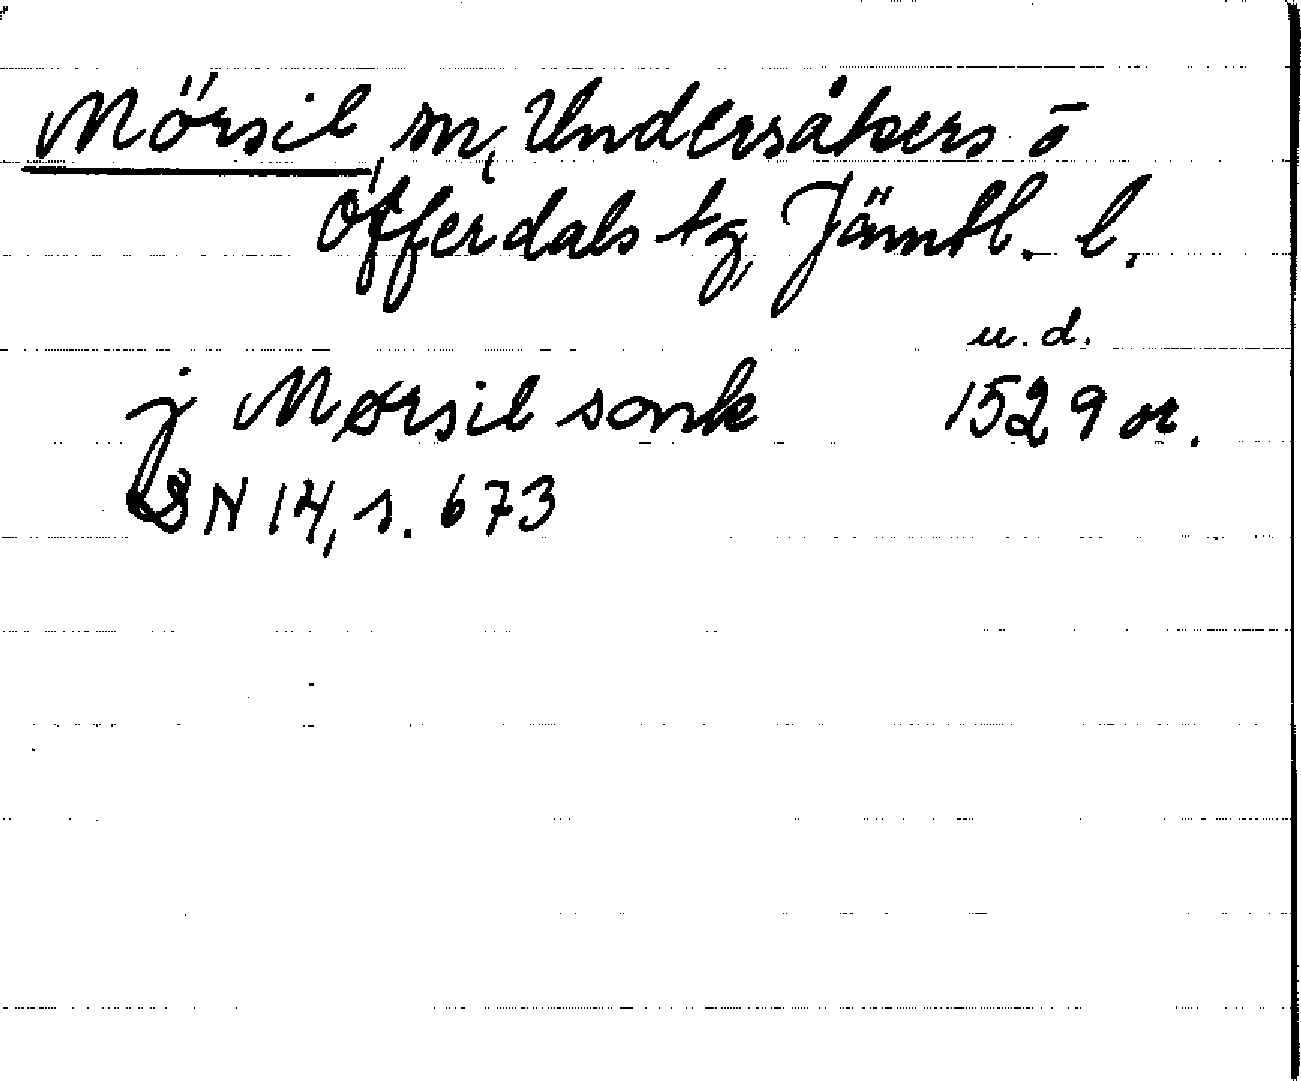 Mörsil sn, Undersåkers o
Offerdals tg, Jämtl. l.
u.d.
j Mørsil sonk 1529 or.
DN 14, s. 673